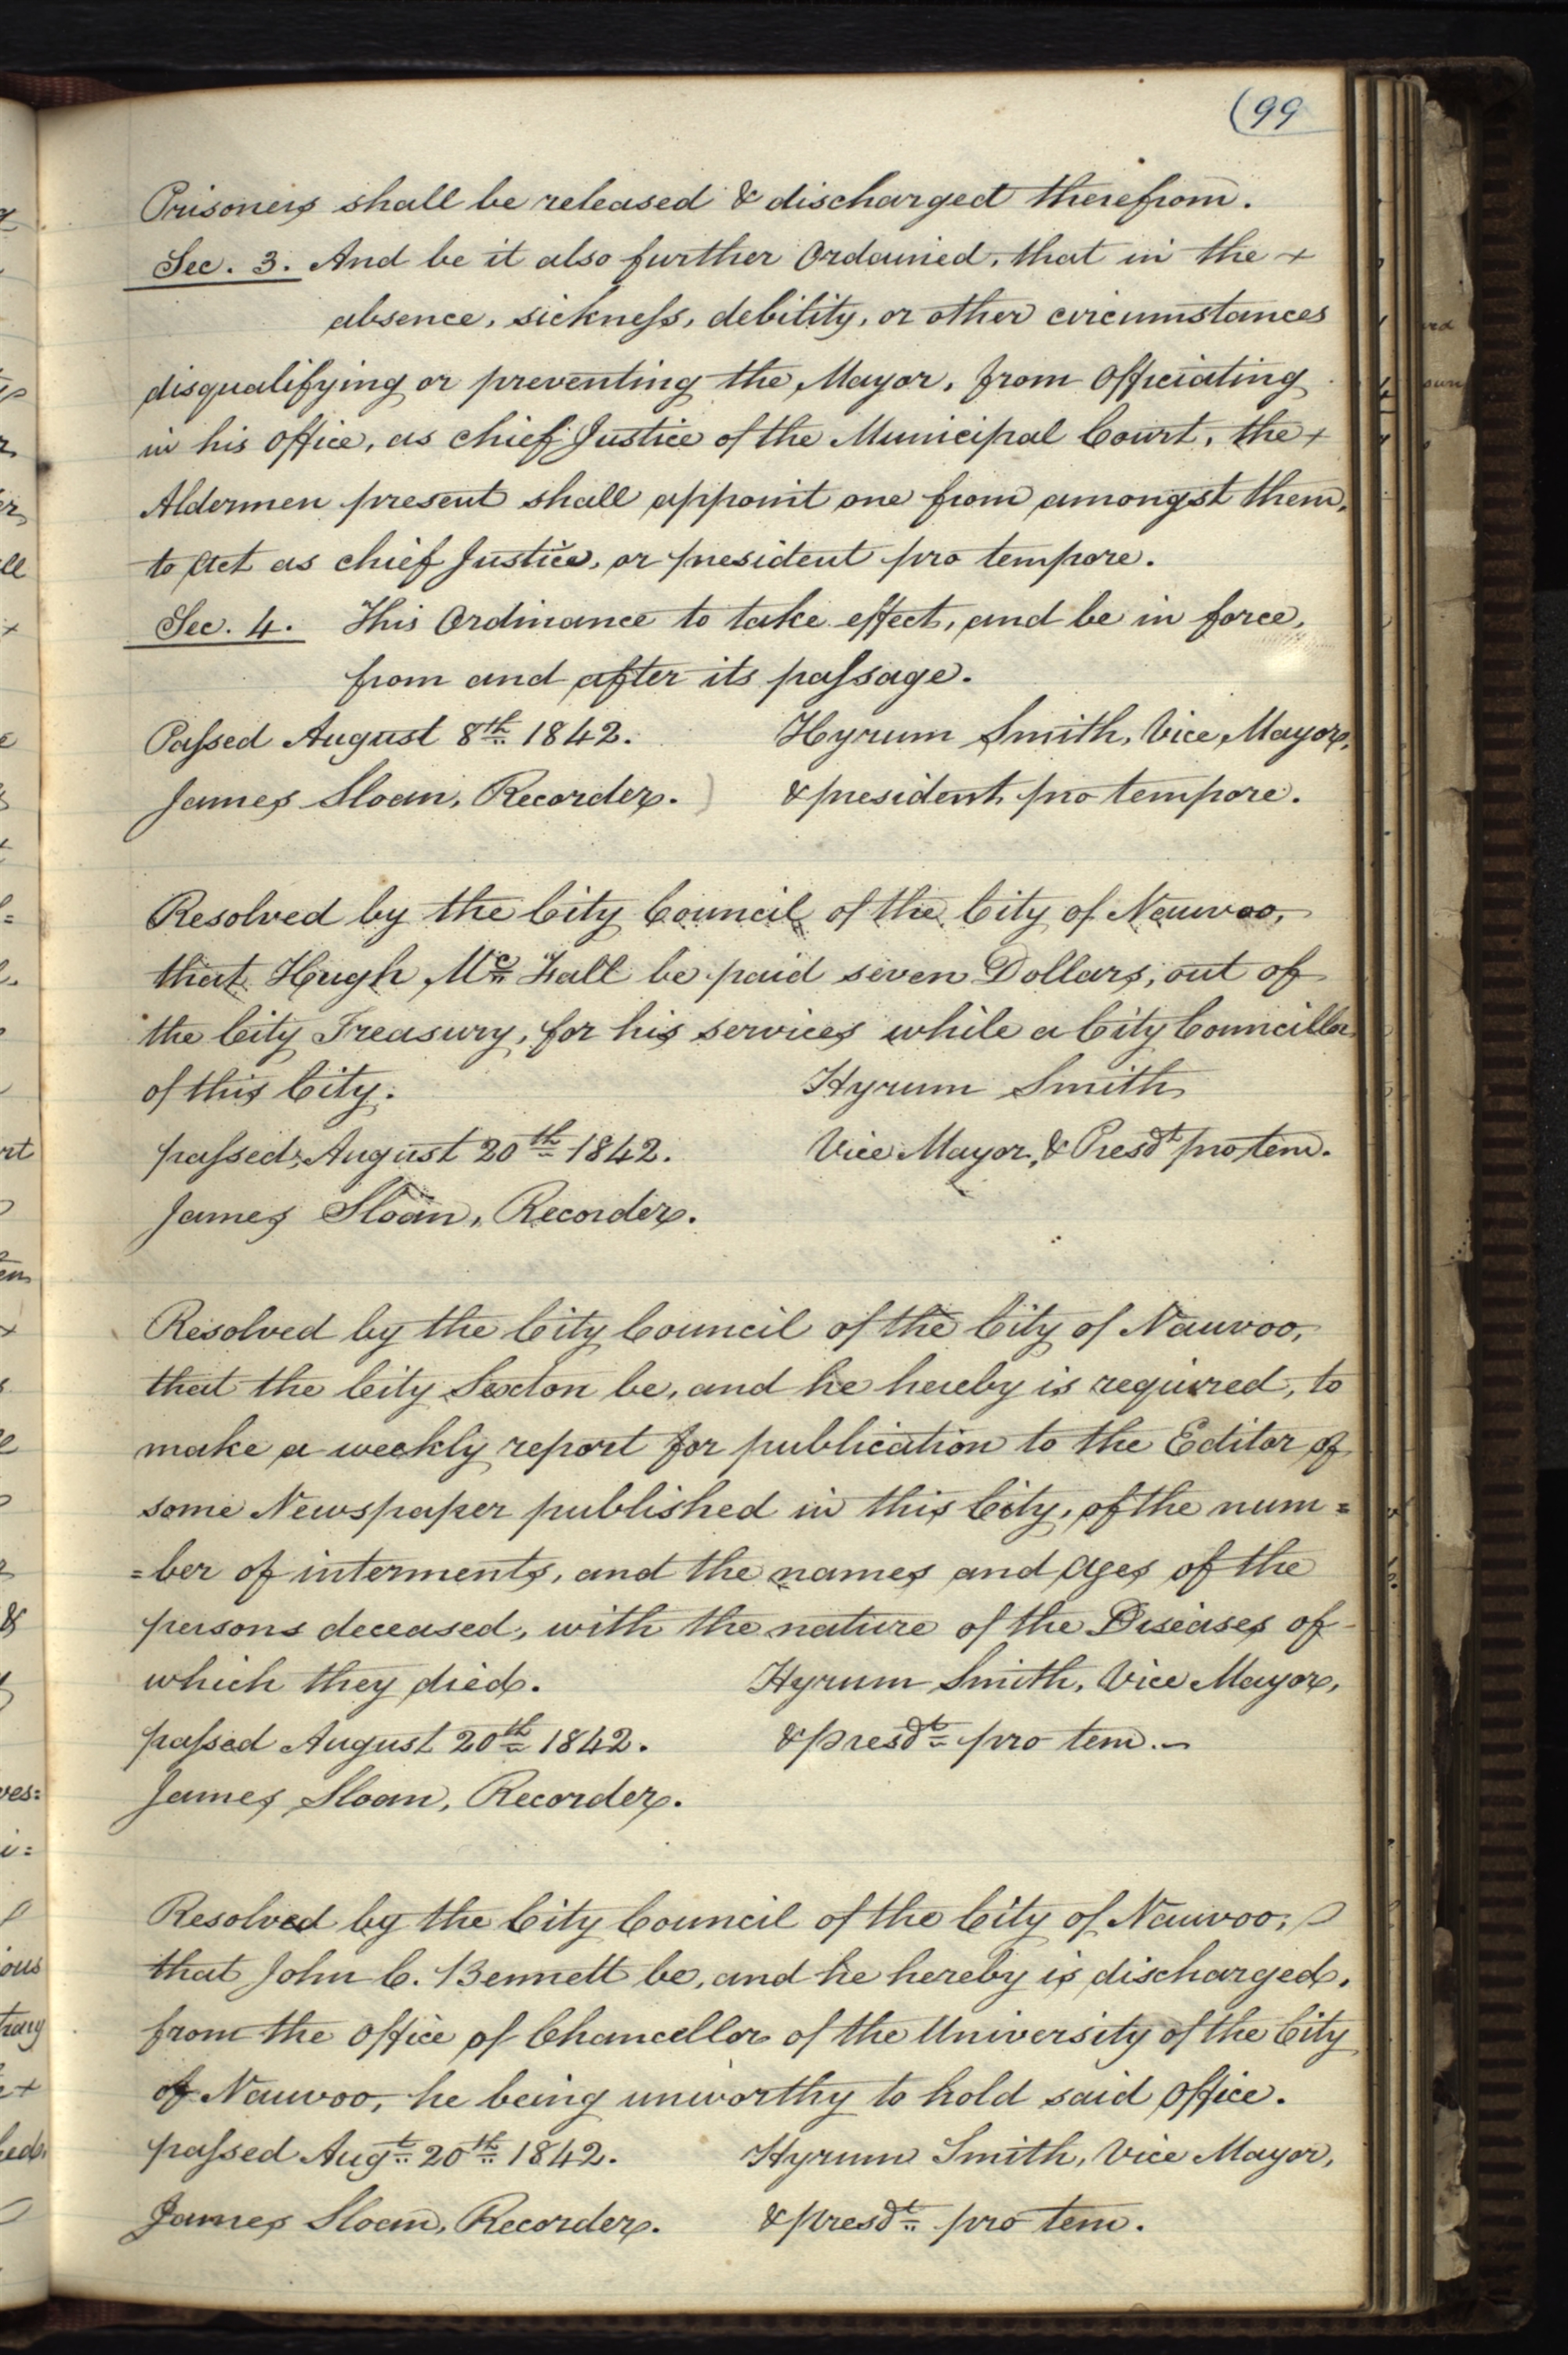 (99
Prisoners shall be released & discharged therefrom.
Sec. 3. And be it also further Ordained, that in the +
absence, sickness, debility, or other circumstances
disqualifying or preventing the Mayor, from Officiating
in his Office, as chief Justice of the Municipal Court, the +
Aldermen present shall appoint one from amongst them,
to Act as chief Justice, or president pro tempore.
Sec. 4. This Ordinance to take effect, and be in force,
from and after its passage.
Passed August 8th 1842. Hyrum Smith, Vice Mayor,
James Sloan, Recorder. ) & president pro tempore.
Resolved by the City Council of the City of Nauvoo,
that Hugh Mc Fall be paid seven Dollars, out of
the City Treasury, for his services while a City Councillor
of this City. Hyrum Smith
passed, August 20th 1842. Vice Mayor, & Presdt pro tem.
James Sloan, Recorder.
Resolved by the City Council of the City of Nauvoo,
that the City Sexton be, and he hereby is required, to
make a weekly report for publication to the Editor of
some Newspaper published in this City, of the num=
=ber of interments, and the names and Ages of the
persons deceased, with the nature of the Diseases of
which they died. Hyrum Smith, Vice Mayor,
passed August 20th 1842. & presdt pro tem.
James Sloan, Recorder.
Resolved by the City Council of the City of Nauvoo,
that John C. Bennett be, and he hereby is discharged,
from the Office of Chancellor of the University of the City
of Nauvoo, he being unworthy to hold said Office.
passed Augt 20th 1842. Hyrum Smith, Vice Mayor,
James Sloan, Recorder. & presdt pro tem.